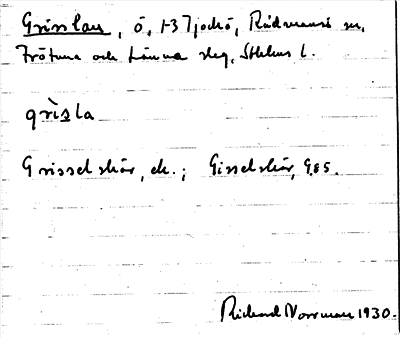 Grisslan, ö, t. Tjockö, Rådmansö sn,
Frötuna och Länna skg, Sthlms l.
grìsla
Grisselskär, ek.; Gisselskär, GES.
Richard Norrman 1930.